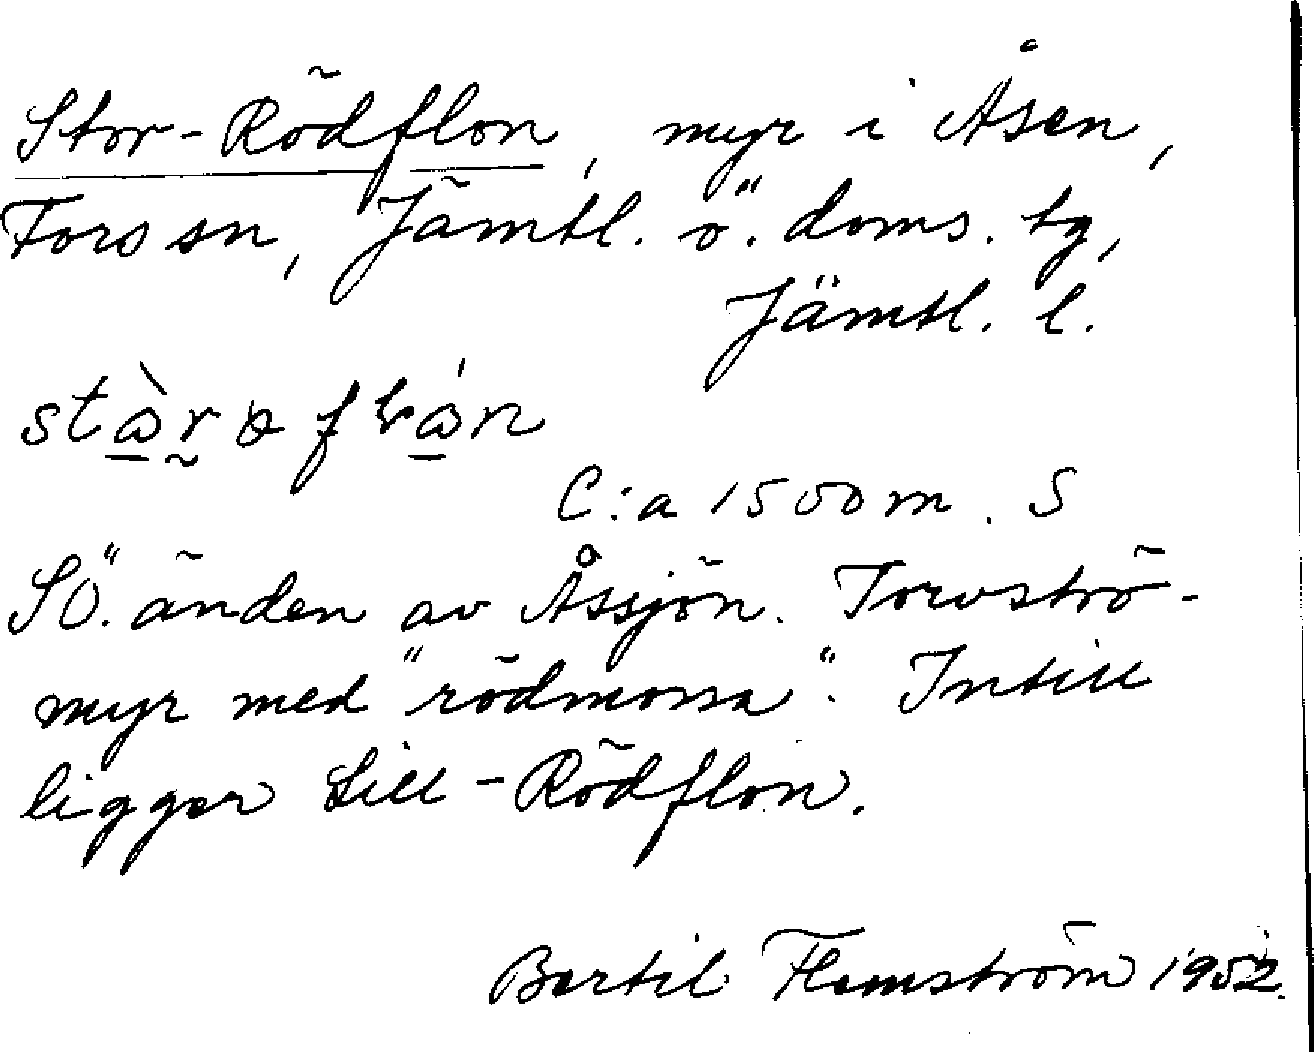 Stor-Rödflon, myr i Åsen,
Fors sn, Jämtl. ö. doms. tg,
Jämtl. l.
C:a 1500 m. S
SÖ. änden av Åssjön. Torvströ-
myr med "rödmossa". Intill
ligger Lill-Rödflon.
Bertil Flemström 1952.